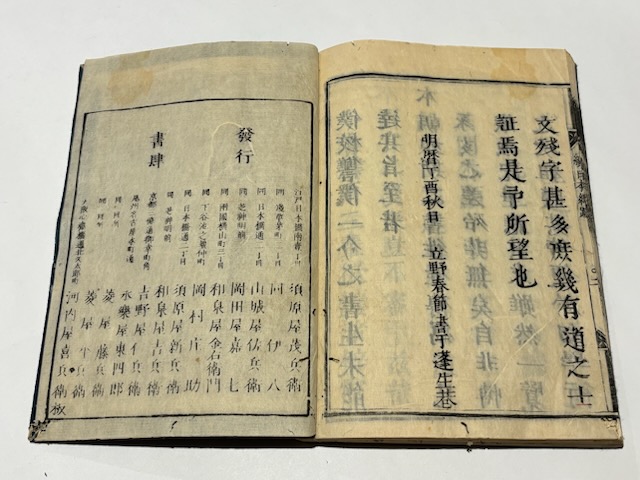 文殘字甚多庶幾有道之士
証焉是予所望也
明暦丁酉秋日 立野春節書于蓬生巷
發行
書肆
江戸日本橋南壹丁目 須原屋茂兵衛
同 浅草茅町二丁目 同 伊八
同 日本橋通二丁目 山城屋佐兵衛
同 芝神明前 岡田屋嘉七
同 兩國横山町三丁目 和泉屋金右衛門
同 下谷池之端仲町 岡村庄助
同 日本橋通二丁目 須原屋新兵衛
同 芝神明前 和泉屋吉兵衛
京都 吉野屋仁兵衛
尾州名古屋本町通 永樂屋東四郎
同 同所 菱屋藤兵衛
同 同所 菱屋平兵衛
河内屋喜兵衛板